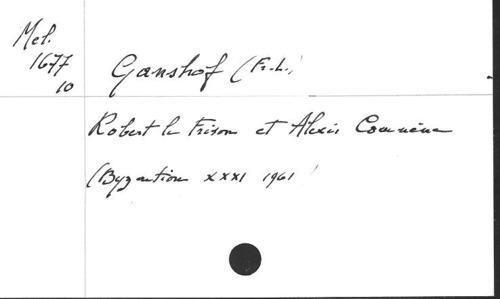 Mel.
1677
10
Ganshof (Fr.-L.)
Robert le Frison et Alexis Comnène
(Byzantion XXXI 1961)